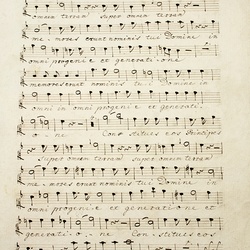 omnem terram super omnem terram
me mores erunt nominis tui Domine in
omni progenie et generati-one
memores erunt nominis tui Domine in
omni in omni progenie et generati-
o - ne Con stitues eos Principes
Super omnem terram super omnem terram
me mores erunt nominis tui Domine in
omni progenie et generati-one et
generati-o-ne Con-stitues eos